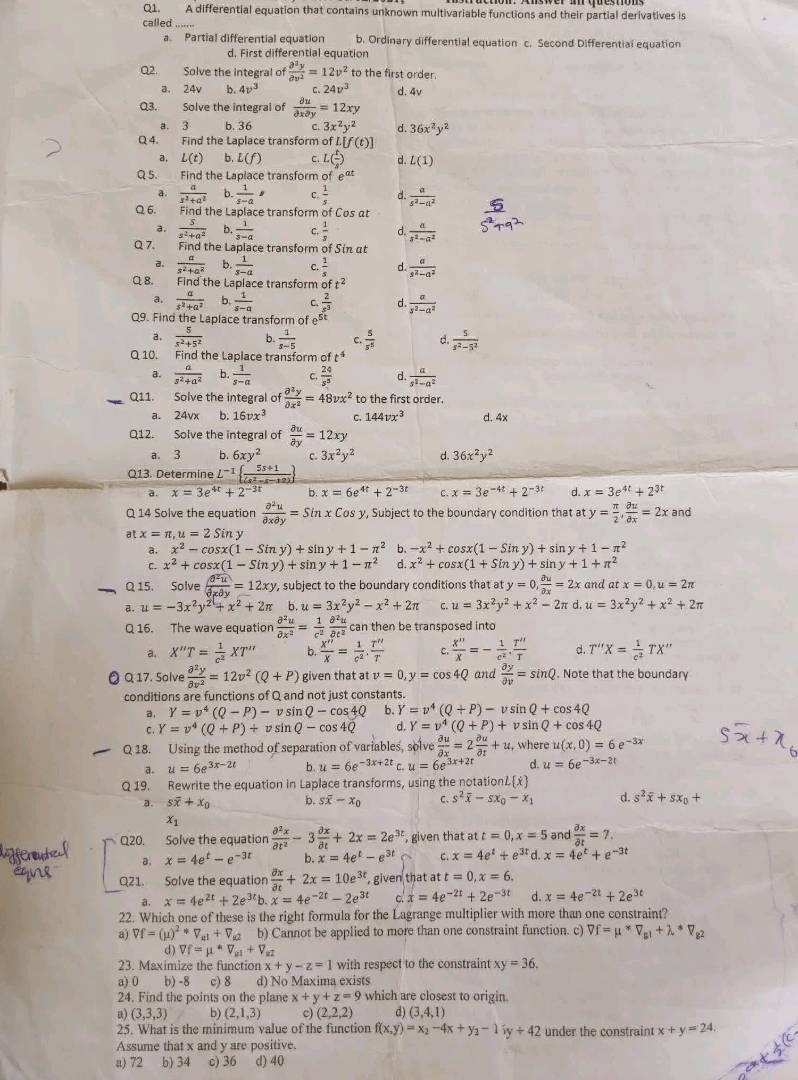 Instruction: Answer all questions
Q1. A differential equation that contains unknown multivariable functions and their partial derivatives is
called .......
a. Partial differential equation b. Ordinary differential equation c. Second Differential equation
d. First differential equation
Q2. Solve the integral of ∂²y/∂v² = 12v² to the first order.
a. 24v b. 4v³ c. 24v³ d. 4v
Q3. Solve the integral of ∂u/∂x∂y = 12xy
a. 3 b. 36 c. 3x²y² d. 36x²y²
Q 4. Find the Laplace transform of L[f(t)]
a. L(t) b. L(f) c. L(t/s) d. L(1)
Q 5. Find the Laplace transform of e^at
a. a/(s²+a²) b. 1/(s−a) c. 1/s d. a/(s²−a²)
Q 6. Find the Laplace transform of Cos at
a. s/(s²+a²) b. 1/(s−a) c. 1/s d. a/(s²−a²)
s/(s²+a²)
Q 7. Find the Laplace transform of Sin at
a. a/(s²+a²) b. 1/(s−a) c. 1/s d. a/(s²−a²)
Q 8. Find the Laplace transform of t²
a. a/(s²+a²) b. 1/(s−a) c. 2/s³ d. a/(s²−a²)
Q9. Find the Laplace transform of e^5t
a. 5/(s²+5²) b. 1/(s−5) c. 5/s⁵ d. 5/(s²−5²)
Q 10. Find the Laplace transform of t⁴
a. a/(s²+a²) b. 1/(s−a) c. 24/s⁵ d. a/(s²−a²)
Q11. Solve the integral of ∂²y/∂x² = 48vx² to the first order.
a. 24vx b. 16vx³ c. 144vx³ d. 4x
Q12. Solve the integral of ∂u/∂y = 12xy
a. 3 b. 6xy² c. 3x²y² d. 36x²y²
Q13. Determine L⁻¹{(5s+1)/(s²−s−12)}
a. x = 3e^4t + 2^−3t b. x = 6e^4t + 2^−3t c. x = 3e^−4t + 2^−3t d. x = 3e^4t + 2^3t
Q 14 Solve the equation ∂²u/∂x∂y = Sin x Cos y, Subject to the boundary condition that at y = π/2, ∂u/∂x = 2x and
at x = π, u = 2 Sin y
a. x² − cosx(1 − Sin y) + sin y + 1 − π² b. −x² + cosx(1 − Sin y) + sin y + 1 − π²
c. x² + cosx(1 − Sin y) + sin y + 1 − π² d. x² + cosx(1 + Sin y) + sin y + 1 + π²
Q 15. Solve ∂²u/∂x∂y = 12xy, subject to the boundary conditions that at y = 0, ∂u/∂x = 2x and at x = 0, u = 2π
a. u = −3x²y² + x² + 2π b. u = 3x²y² − x² + 2π c. u = 3x²y² + x² − 2π d. u = 3x²y² + x² + 2π
Q 16. The wave equation ∂²u/∂x² = 1/c² ∂²u/∂t² can then be transposed into
a. X"T = 1/c² XT" b. X"/X = 1/c² . T"/T c. X"/X = − 1/c² . T"/T d. T"X = 1/c² TX"
Q 17. Solve ∂²y/∂v² = 12v² (Q + P) given that at v = 0, y = cos 4Q and ∂y/∂v = sinQ. Note that the boundary
conditions are functions of Q and not just constants.
a. Y = v⁴ (Q − P) − v sin Q − cos 4Q b. Y = v⁴ (Q + P) − v sin Q + cos 4Q
c. Y = v⁴ (Q + P) + v sin Q − cos 4Q d. Y = v⁴ (Q + P) + v sin Q + cos 4Q
Q 18. Using the method of separation of variables, solve ∂u/∂x = 2 ∂u/∂t + u, where u(x, 0) = 6 e^−3x
a. u = 6e^3x−2t b. u = 6e^−3x+2t c. u = 6e^3x+2t d. u = 6e^−3x−2t
Sx̄ + x₀
Q 19. Rewrite the equation in Laplace transforms, using the notation L{ẋ}
a. sx̄ + x₀ b. sx̄ − x₀ c. s²x̄ − sx₀ − x₁ d. s²x̄ + sx₀ +
x₁
differential
eqns
Q20. Solve the equation ∂²x/∂t² − 3 ∂x/∂t + 2x = 2e^3t, given that at t = 0, x = 5 and ∂x/∂t = 7.
a. x = 4e^t − e^−3t b. x = 4e^t − e^3t c. x = 4e^t + e^3t d. x = 4e^t + e^−3t
Q21. Solve the equation ∂x/∂t + 2x = 10e^3t, given that at t = 0, x = 6.
a. x = 4e^2t + 2e^3t b. x = 4e^−2t − 2e^3t c. x = 4e^−2t + 2e^−3t d. x = 4e^−2t + 2e^3t
22. Which one of these is the right formula for the Lagrange multiplier with more than one constraint?
a) ∇f = (μ)² * ∇g1 + ∇g2 b) Cannot be applied to more than one constraint function. c) ∇f = μ * ∇g1 + λ * ∇g2
d) ∇f = μ * ∇g1 + ∇g2
23. Maximize the function x + y − z = 1 with respect to the constraint xy = 36.
a) 0 b) -8 c) 8 d) No Maxima exists
24. Find the points on the plane x + y + z = 9 which are closest to origin.
a) (3,3,3) b) (2,1,3) c) (2,2,2) d) (3,4,1)
25. What is the minimum value of the function f(x,y) = x₂ −4x + y₂ − 1 iy + 42 under the constraint x + y = 24.
Assume that x and y are positive.
a) 72 b) 34 c) 36 d) 40